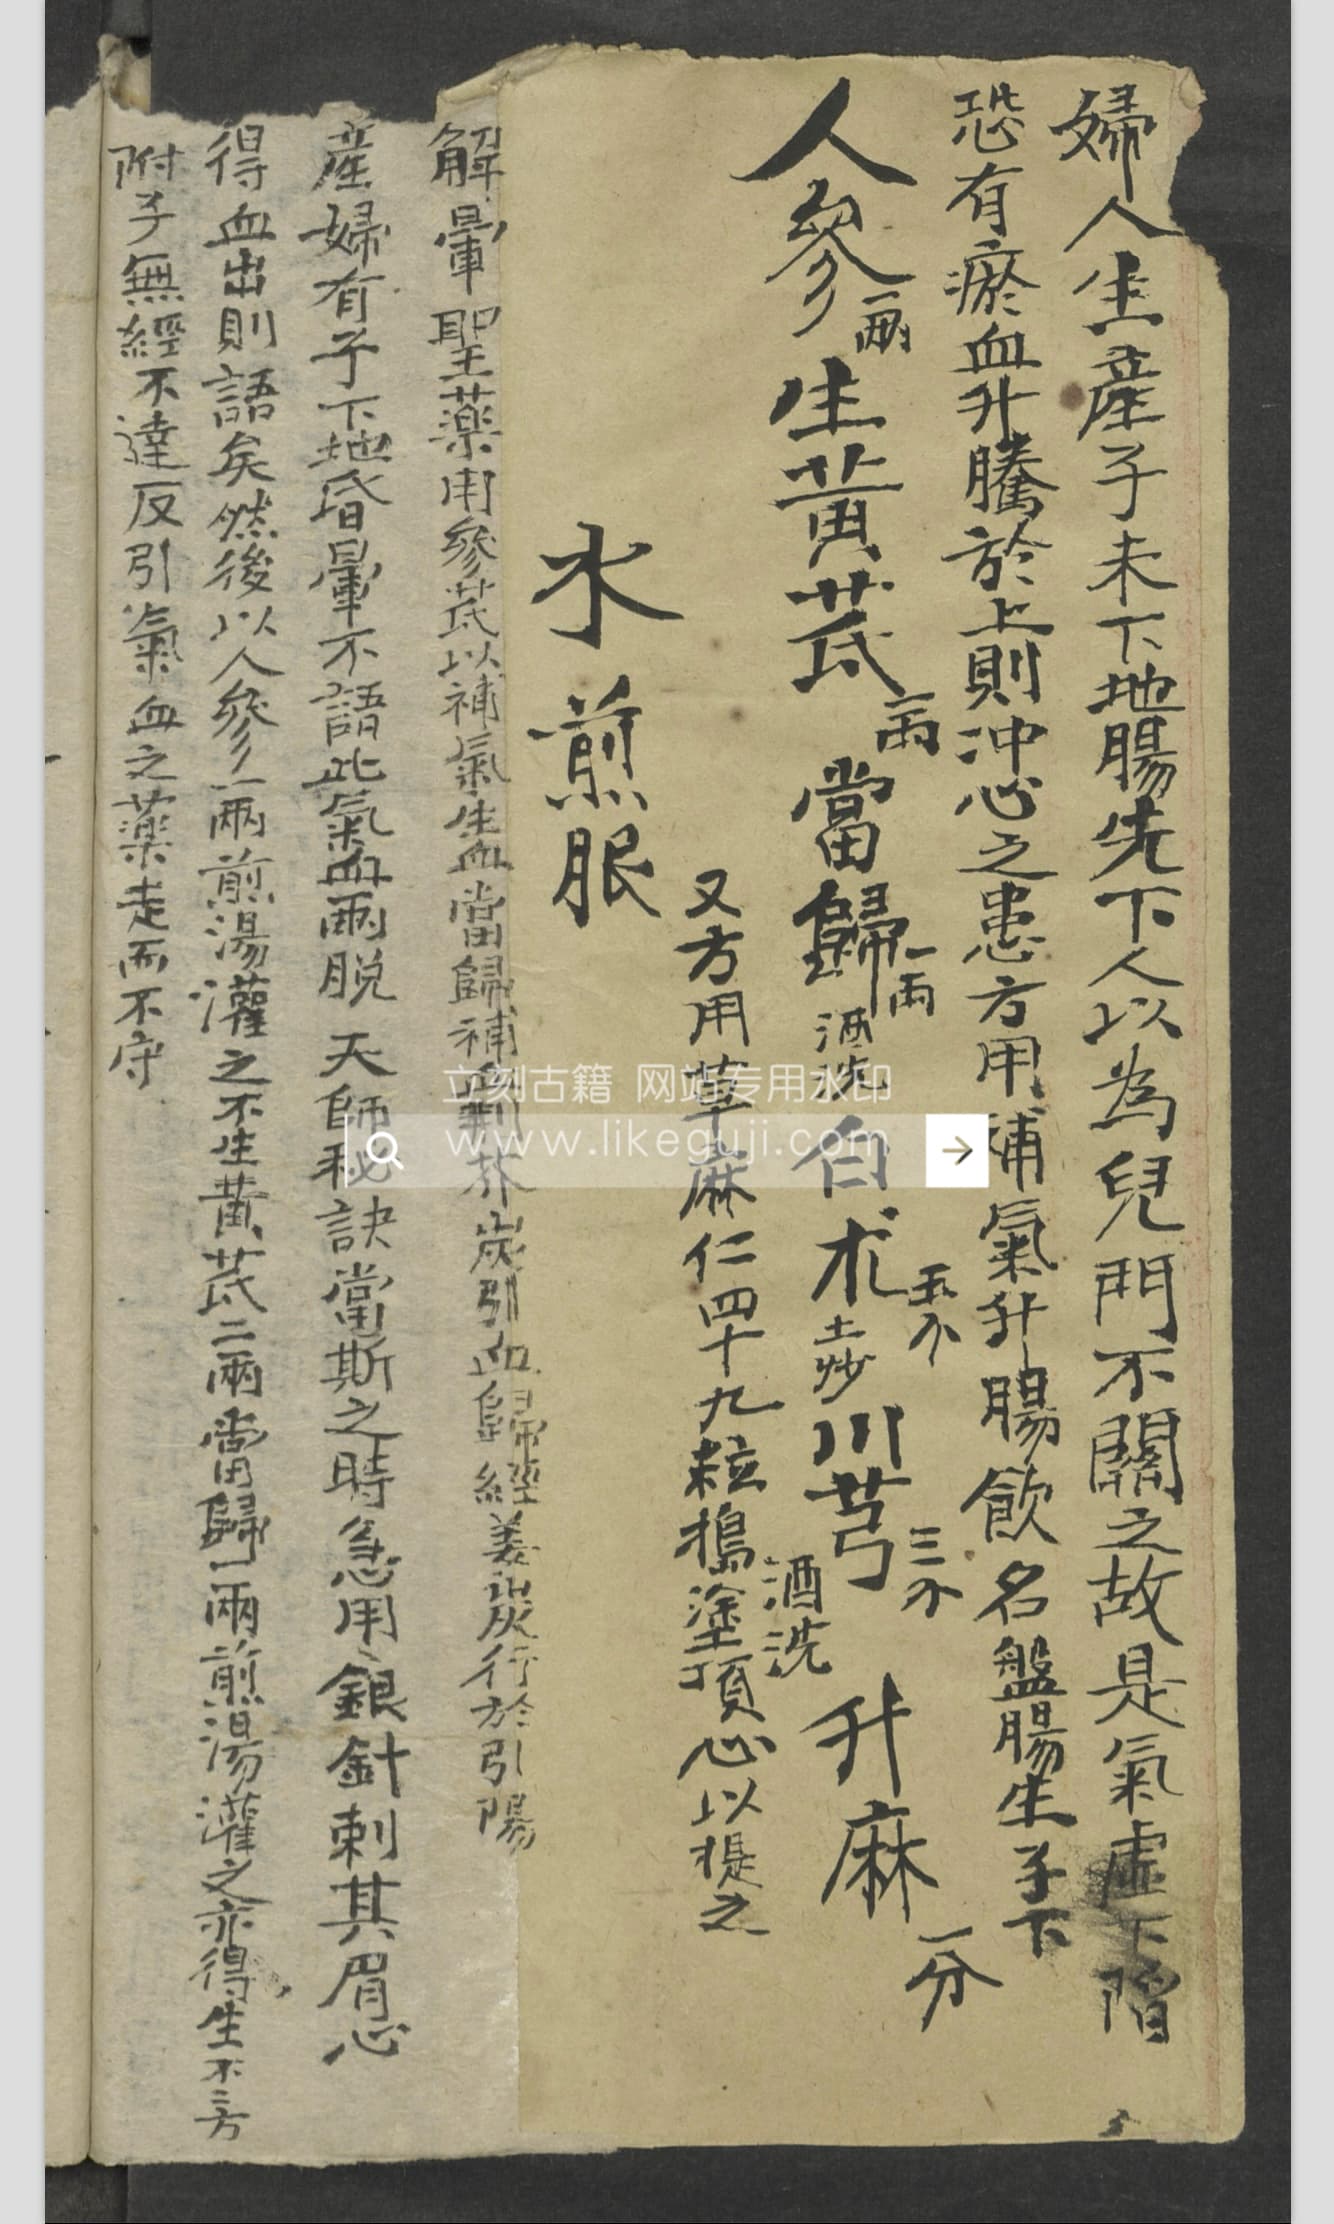 婦人生產子未下地腸先下人以為兒門不關之故是氣虛下陷
恐有瘀血升騰於上則沖心之患方用補氣升腸飲名盤腸生子下
人參一兩生黃芪二兩當歸一兩酒洗白朮五分土炒川芎三分酒洗升麻一分
又方用草麻仁四十九粒搗塗頂心以提之
水煎服
解暈聖藥用參芪以補氣生血當歸補血荊芥炭引血歸經姜炭行於引陽
產婦有子下地昏暈不語此氣血兩脫天師秘訣當斯之時急用銀針刺其眉心
得血出則語矣然後以人參一兩煎湯灌之不生黃芪二兩當歸一兩煎湯灌之亦得生不二方
附子無經不達反引氣血之藥走而不守
立刻古籍 网站专用水印
www.likeguji.com